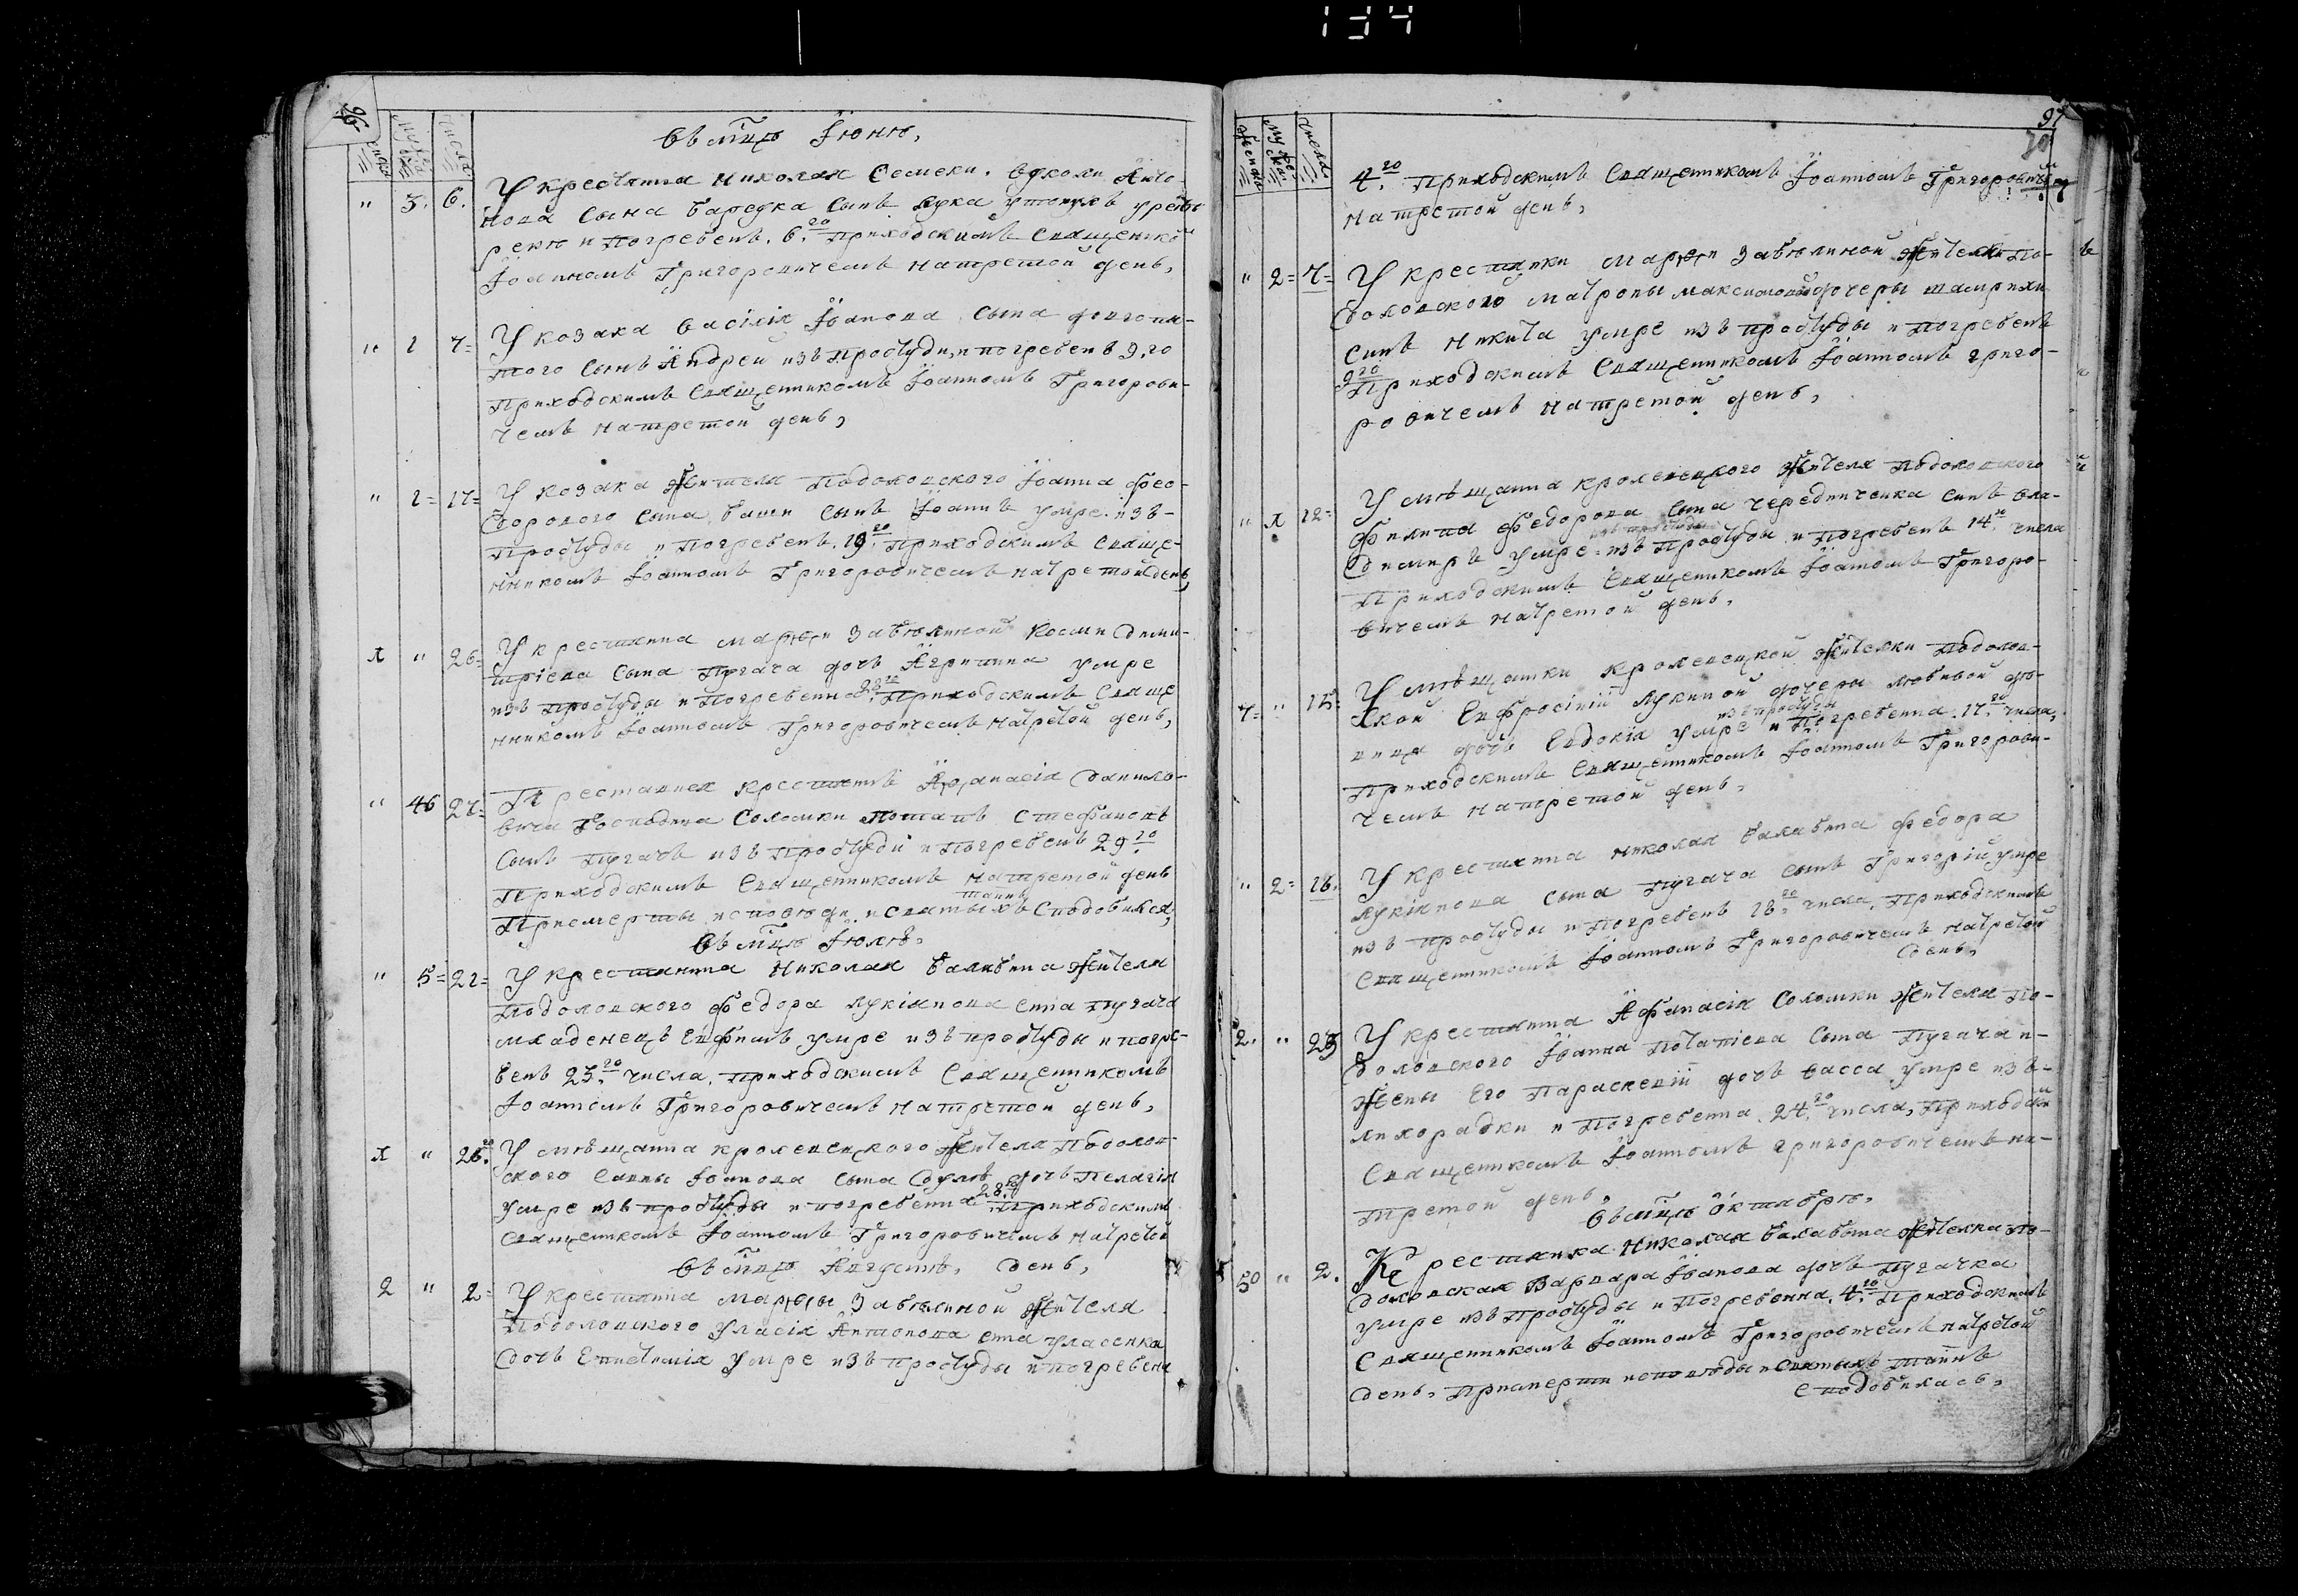 134
96
Числа
Въ мцѣ Їюнѣ,
" 3. 6. У крестянина Николая Семеки, Анто-
нова сына сынъ Лука утонулъ
и погребенъ. 6.го приходскимъ Священико
Їоанномъ Григоровичемъ на третой день,
" 1 7= У козака Василія Їоанова сына
сынъ Андрей изъ простуди, и погребенъ 9.го
приходскимъ Священникомъ Їоанномъ Григорови-
чемъ на третой день,
" 1= 17= У козака жителя Подоловского Їоанна Фео-
дорового сына сынъ Їоаннъ умре изъ-
простуды и погребенъ. 19.го приходскимъ Свяще-
нникомъ Їоанномъ Григоровичемъ на третой день,
1 " 26= У крестянина Марѳи Забѣлиной Косми Дими-
тріева сына Пугача дочь Агрипина умре
изъ простуды и погребенна 28.го приходскимъ Свяще
нникомъ Їоанномъ Григоровичемъ на третой день,
" 46 27= Преставися крестянинъ Аѳанасія Данило-
вича Господина Соломки Потапъ Стефановъ
сынъ Пугачъ изъ простуди и погребенъ 29.го
приходскимъ Священникомъ на третой день
таинъ
при смерти исповѣди и святыхъ сподобился,
Въ мцѣ Їюлѣ,
" 5= 21= У крестянина Николая Балабина жителя
Подоловского Федора Лукіянова сина Пугача
младенецъ Евфимъ умре изъ простуды и погре-
бенъ 23.го числа, приходскимъ Священникомъ
Їоанномъ Григоровичемъ на третой день,
1 " 26. У мѣщанина кролевецкого жителя Подолов-
ского Савы Їоанова сына дочь Пелагія
умре изъ простуды и погребенна 28.го приходскимъ
Священникомъ Їоанномъ Григоровичемъ на третой
день,
Въ мцѣ Августѣ,
2 " 2= У крестянина Марѳы Забѣлиной жителя
Подоловского Уласія Антонова сина Уласенка
дочь Епистимія умре изъ простуды и погребена
97
Женска Муска Числа
4.го приходскимъ Священникомъ Їоанномъ Григоровичем
на третой день,
" 2= 7= У крестянки Марѳи Забѣлиной жителки По-
доловского Матроны Максимовой дочеры
синъ Никита умре изъ простуды и погребенъ
9го приходскимъ Священникомъ Їоанномъ Григо-
ровичемъ на третой день,
" 1 12= У мѣщанина кролевецкого жителя Подоловского
Филипа Федорова сына Чередниченка синъ Вла-
димиръ умре изъ простуды и погребенъ 14.го числа
приходскимъ Священникомъ Їоаномъ Григоро-
вичемъ на третой день,
7= " 15= У мѣщанки кролевецкой жителки Подолов-
ской Евфросініи Лукиной дочери
изъ простуды
дочь Евдокія умре и погребенна 17.го числа,
приходскимъ Священникомъ Їоанномъ Григорови-
чемъ на третой день,
" 2= 16. У крестянина Николая Балабина Федора
Лукіянова сына Пугача сынъ Григорій умре
изъ простуды и погребенъ 18.го числа, приходскимъ
Священникомъ Їоанномъ Григоровичемъ на третой
день,
2. " 23 У крестянина Афанасія Соломки жителя По-
доловского Їоанна Потапіева сына Пугача и-
жены его Параскевіи дочь Васса умре изъ-
лихорадки и погребенна 24.го числа, приходским
Священникомъ Їоанномъ Григоровичемъ на-
третой день,
Въ мцѣ Октябрѣ,
50 " 2. Крестянка Николая Балабина жителка По-
доловская Варвара Їоанова дочь Пугачка
умре изъ простуды и погребенна, 4.го приходскимъ
Священникомъ Їоанномъ Григоровичемъ на третой
день, при смерти исповѣди и святыхъ таинъ
сподобилась,